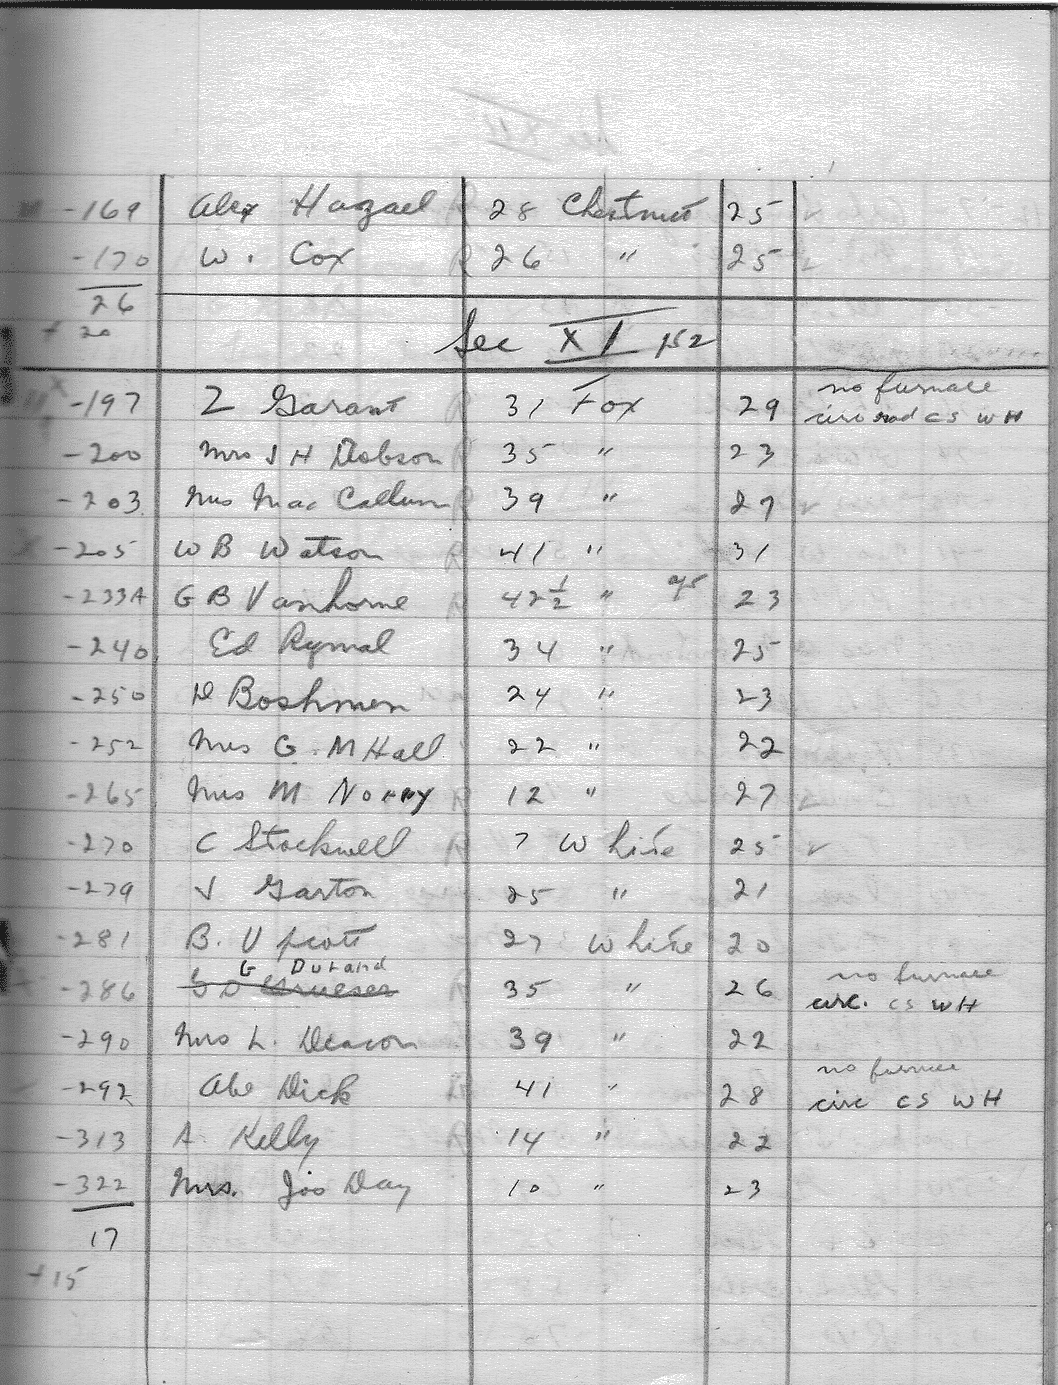 -169 Alex Hagael 28 Chestnut 25
-170 W. Cox 26 " 25
26
+ 20
Sec XI p52
-197 Z Garant 31 Fox 29 no furnace
circ rad CS WH
-200 Mrs J H Dobson 35 " 23
-203 Mrs MacCallum 39 " 27
-205 W B Watson 41 " 31
-233A G B Vanhorne 42½ " 23
-240 Ed Rymal 34 " 25
-250 D Boshmen 24 " 23
-252 Mrs G. M Hall 22 " 22
-265 Mrs M Norry 12 " 27
-270 C Stockwell 7 White 25
-279 J Garton 25 " 21
-281 B. Upcott 27 White 20
G Durand no furnace
-286 G D Grueser 35 " 26 circ. CS WH
-290 Mrs L. Deacon 39 " 22
no furnace
-292 Abe Dick 41 " 28 circ CS WH
-313 A. Kelly 14 " 22
-322 Mrs. Jos Day 10 " 23
17
+15